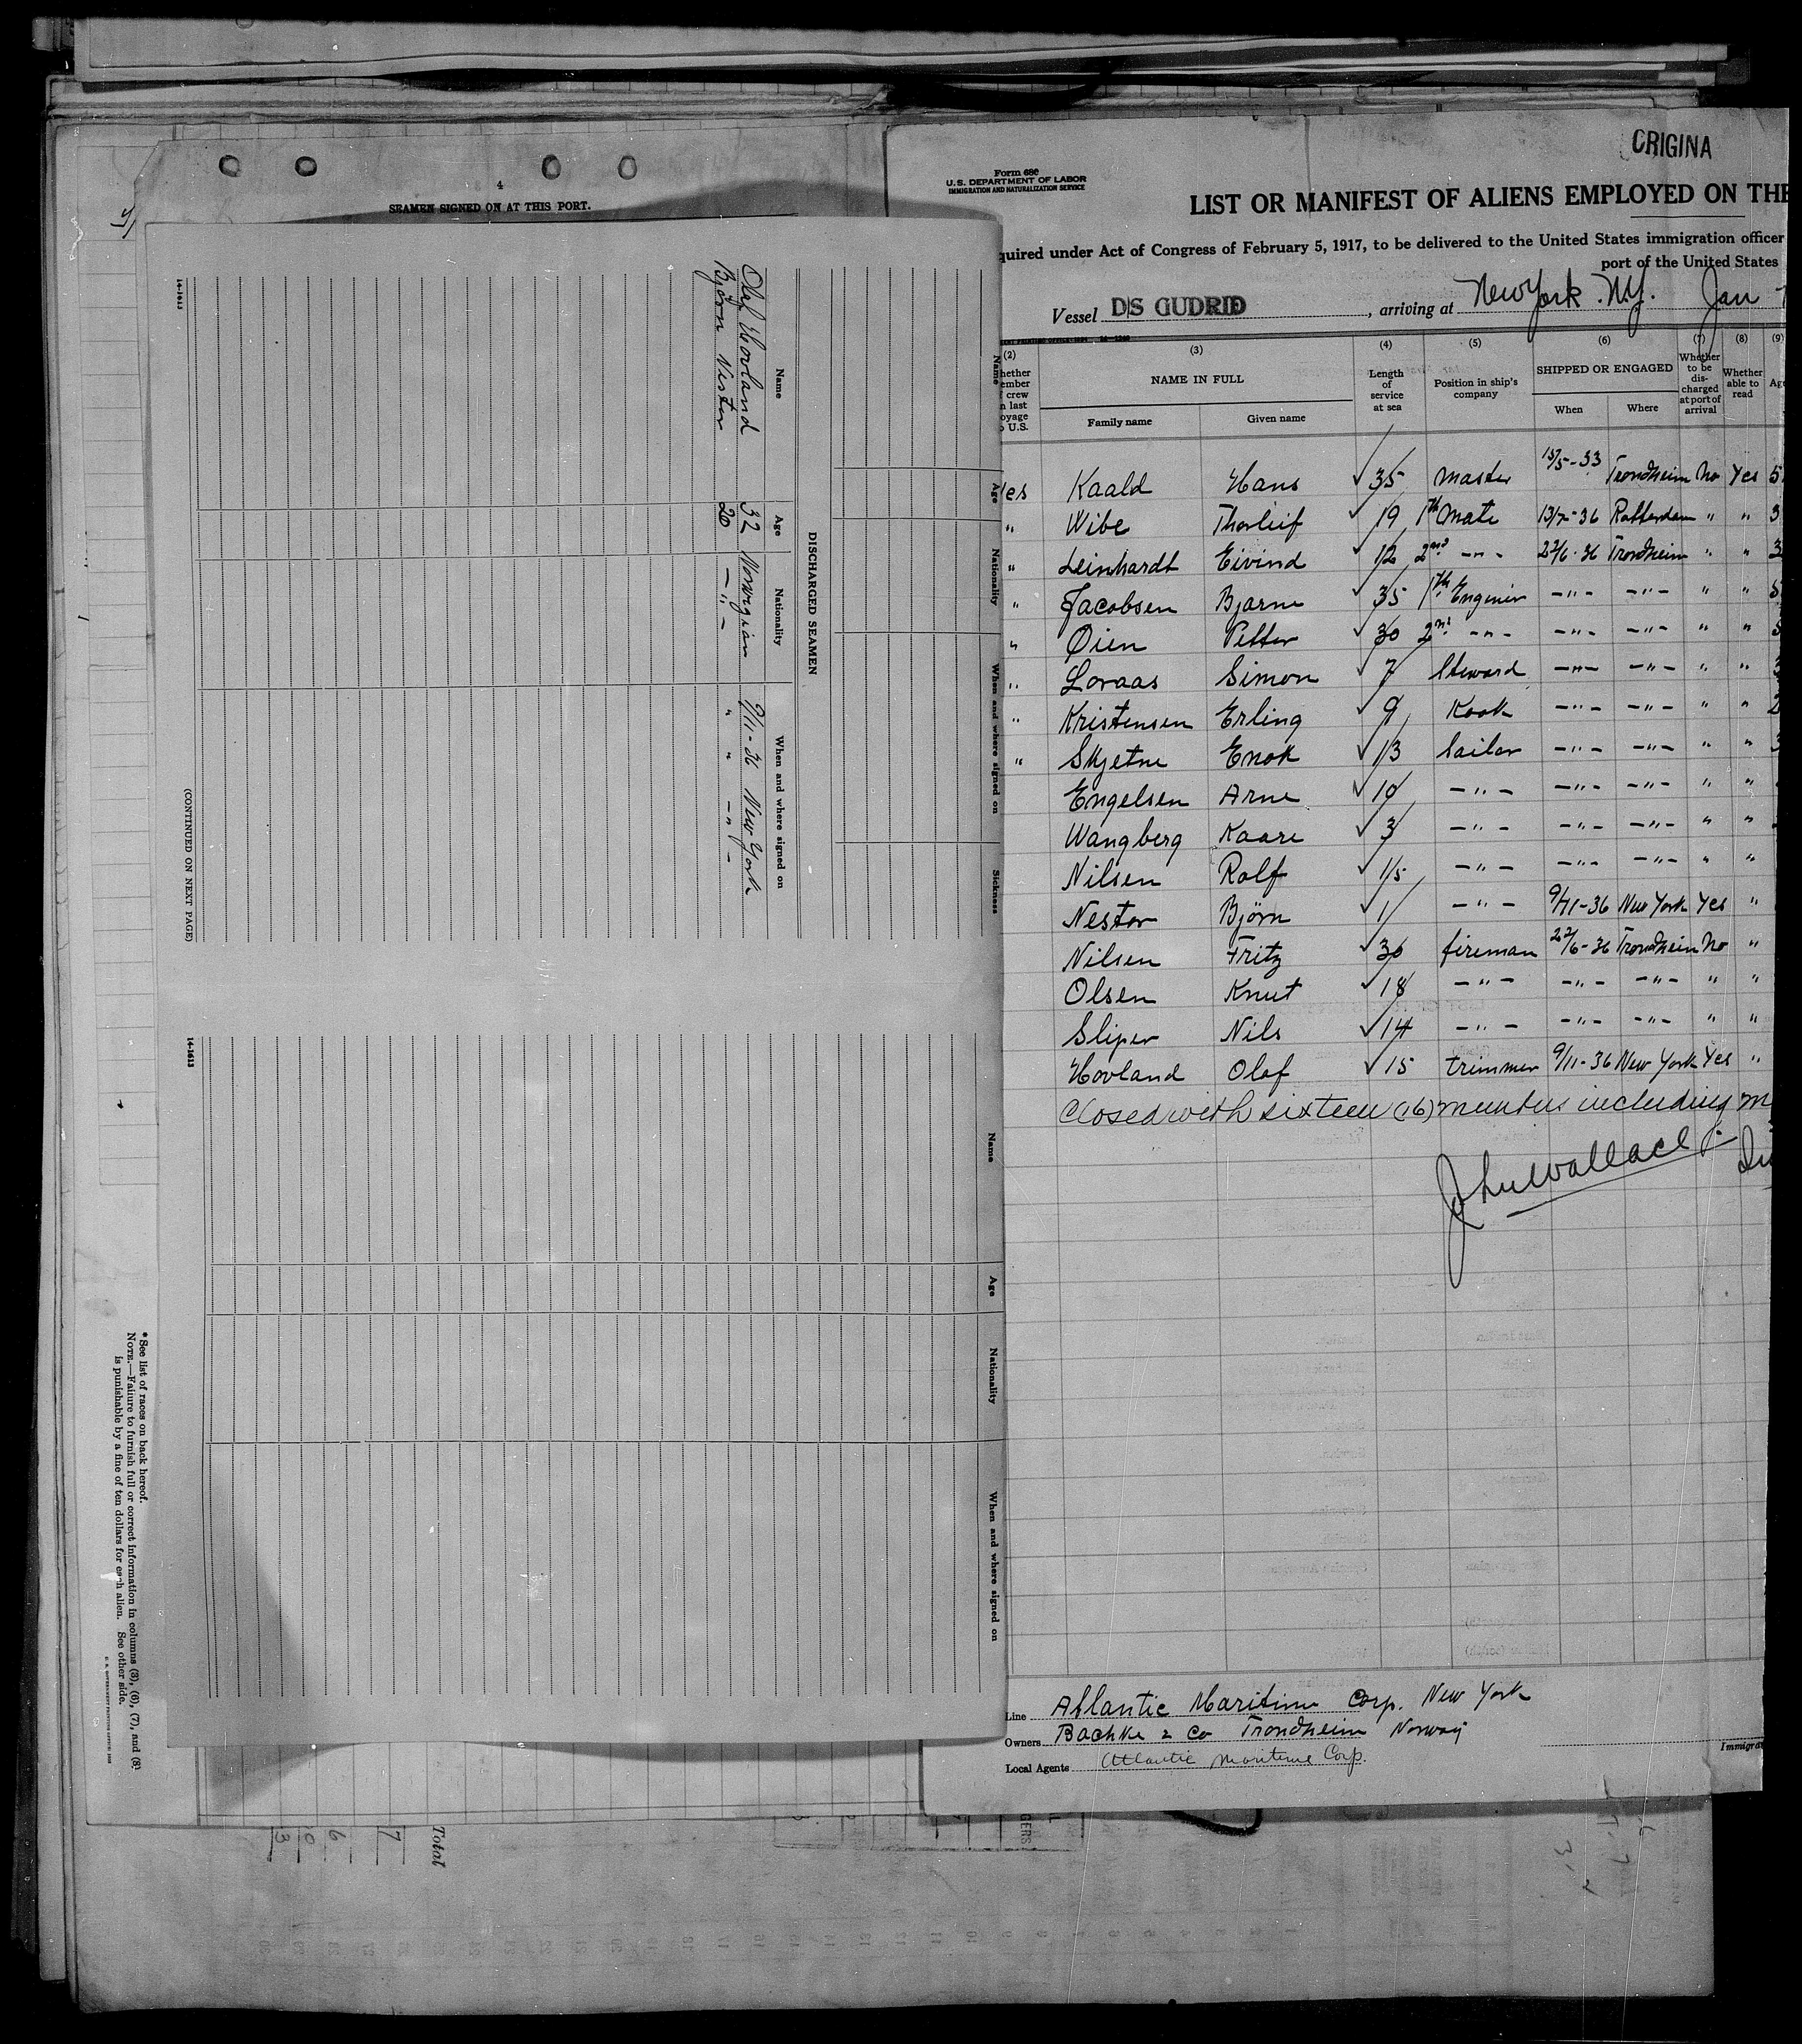 4
SEAMEN SIGNED ON AT THIS PORT.
Name Age Nationality When and where signed on Sickness
DISCHARGED SEAMEN
Name Age Nationality When and where signed on
Olaf Hovland 32 Norwegian 9/11-36 New York
Björn Nestor 20 —"— " " —"—
(CONTINUED ON NEXT PAGE)
14-1613
Name Age Nationality When and where signed on
14-1613
*See list of races on back hereof.
NOTE.—Failure to furnish full or correct information in columns (3), (6), (7), and (8)
is punishable by a fine of ten dollars for each alien. See other side.
Total
7
6
0
3
ORIGINA
Form 680
U.S. DEPARTMENT OF LABOR
IMMIGRATION AND NATURALIZATION SERVICE
LIST OR MANIFEST OF ALIENS EMPLOYED ON THE
quired under Act of Congress of February 5, 1917, to be delivered to the United States immigration officer
port of the United States
Vessel D/S GUDRID, arriving at New York. N.Y. Jan
(2) (3) (4) (5) (6) (7) (8) (9)
hether ember f crew n last oyage o U.S.
NAME IN FULL
Family name Given name
Length of service at sea
Position in ship's company
SHIPPED OR ENGAGED
When Where
Whether to be discharged at port of arrival
Whether able to read
Age
Yes Kaald Hans 35 Master 15/5-33 Trondheim No Yes 5
" Wibe Thorleif 19 1th Mate 13/7-36 Rotterdam " " 3
" Leinhardt Eivind 12 2nd —"— 22/6-36 Trondheim " " 3
" Jacobsen Bjarne 35 1th Enginier —"— —"— " " 5
" Öien Petter 30 2nd —"— —"— —"— " " 5
" Loraas Simon 7 Steward —"— —"— " " 3
" Kristensen Erling 9 Kook —"— —"— " " 2
" Skjetne Enok 13 Sailor —"— —"— " " 3
Engelsen Arne 10 —"— —"— —"— " "
Wangberg Kaare 3 —"— —"— —"— " "
Nilsen Rolf 15 —"— —"— —"— " "
Nestor Björn 1 —"— 9/11-36 New York Yes "
Nilsen Fritz 30 fireman 22/6-36 Trondheim No "
Olsen Knut 18 —"— —"— —"— " "
Sliper Nils 14 —"— —"— —"— " "
Hovland Olaf 15 trimmer 9/11-36 New York Yes "
Closed with sixteen (16) members including m
John Wallace
Line Atlantic Maritime Corp. New York
Owners Bachke & Co Trondheim Norway
Local Agents Atlantic Maritime Corp.
Immigra
GERS